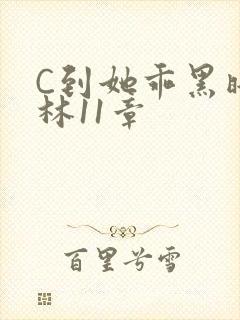 C到她乖黑
林11章
百里兮雪